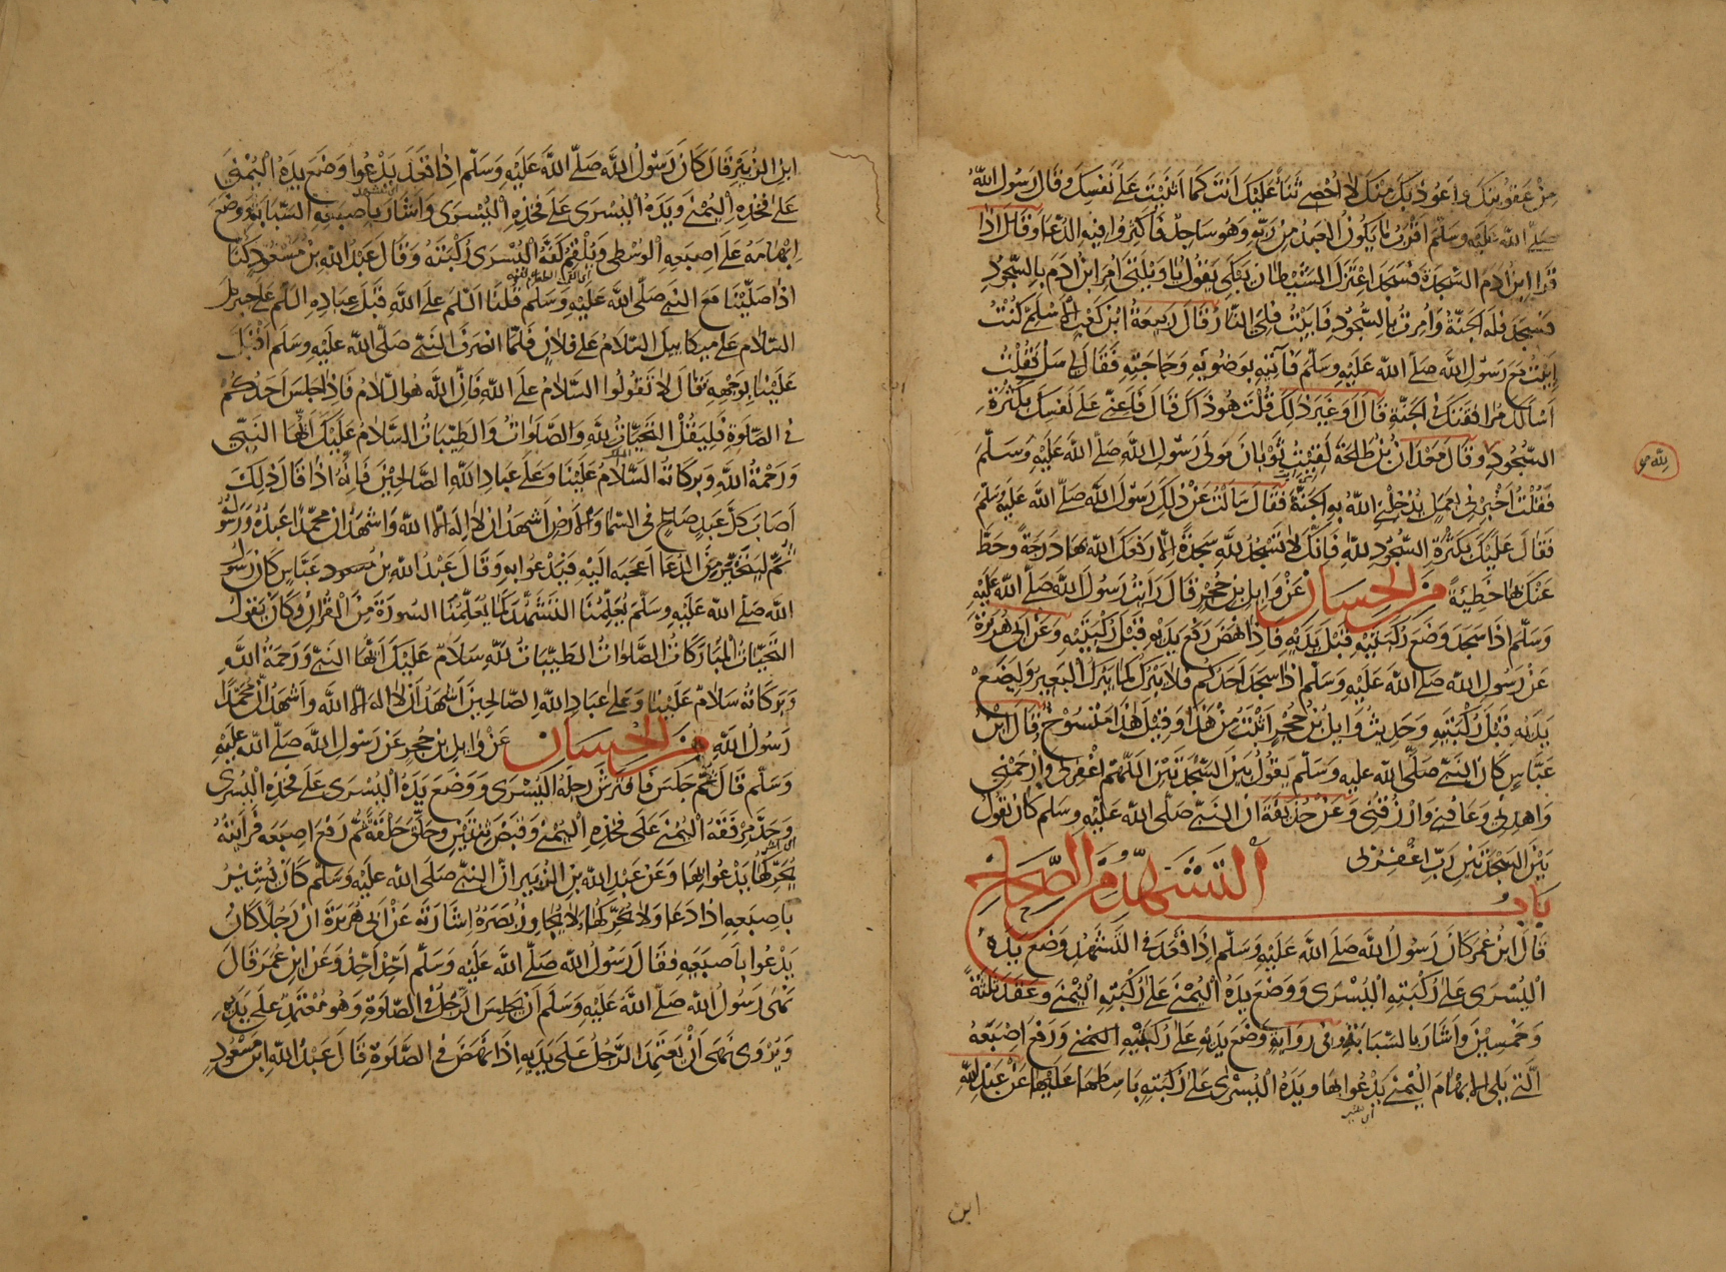 من عقوبتك واعوذ بك منك لا احصي ثناء عليك انت كما اثنيت على نفسك وقال رسول الله
صلى الله عليه وسلم اقرب ما يكون العبد من ربه وهو ساجد فاكثروا فيه الدعاء وقال اذا
قرا ابن ادم السجدة فسجد اعتزل الشيطان يبكي يقول يا ويلتى امر ابن ادم بالسجود
فسجد فله الجنة وامرت بالسجود فابيت فلي النار قال ربيعة ابن كعب الاسلمي كنت
ابيت مع رسول الله صلى الله عليه وسلم فآتيه بوضوئه وحاجته فقال لي سل فقلت
اسالك مرافقتك في الجنة قال او غير ذلك قلت هو ذاك قال فاعني على نفسك بكثرة
السجود وقال معدان بن طلحة لقيت ثوبان مولى رسول الله صلى الله عليه وسلم
فقلت اخبرني بعمل يدخلني الله به الجنة فقال سالت عن ذلك رسول الله صلى الله عليه وسلم
فقال عليك بكثرة السجود لله فانك لا تسجد لله سجدة الا رفعك الله بها درجة وحط
عنك بها خطيئة من الحسان عن وايل بن حجر قال رايت رسول الله صلى الله عليه
وسلم اذا سجد وضع ركبتيه قبل يديه فاذا نهض رفع يديه قبل ركبتيه وعن ابي هريرة
عن رسول الله صلى الله عليه وسلم اذا سجد احدكم فلا يبرك كما يبرك البعير وليضع
يديه قبل ركبتيه وحديث وايل بن حجر اثبت من هذا وقيل هذا منسوخ قال ابن
عباس كان النبي صلى الله عليه وسلم يقول بين السجدتين اللهم اغفر لي وارحمني
واهدني وعافني وارزقني وعن حذيفة ان النبي صلى الله عليه وسلم كان يقول
بين السجدتين رب اغفر لي
باب التشهد من الصحاح
قال ابن عمر كان رسول الله صلى الله عليه وسلم اذا قعد في التشهد وضع يده
اليسرى على ركبته اليسرى ووضع يده اليمنى على ركبته اليمنى وعقد ثلثة
وخمسين واشار بالسبابة وفي رواية وضع يديه على ركبتيه اليمنى ورفع اصبعه
التي يلي الابهام اليمنى يدعو بها ويده اليسرى على ركبته باسطها عليها عن عبد الله
ابن
ابن الزبير قال كان رسول الله صلى الله عليه وسلم اذا قعد يدعوا وضع يده اليمنى
على فخذه اليمنى ويده اليسرى على فخذه اليسرى واشار باصبعه السبابة ووضع
ابهامه على اصبعه الوسطى ويلقم كفه اليسرى ركبته وقال عبد الله بن مسعود كنا
اذا صلينا مع النبي صلى الله عليه وسلم قلنا السلم على الله قبل عباده السلم على جبريل
السلام على ميكاييل السلام على فلان فلما انصرف النبي صلى الله عليه وسلم اقبل
علينا بوجهه قال لا تقولوا السلام على الله فان الله هو السلام فاذا جلس احدكم
في الصلوة فليقل التحيات لله والصلوات والطيبات السلام عليك ايها النبي
ورحمة الله وبركاته السلام علينا وعلى عباد الله الصالحين فانه اذا قال ذلك
اصاب كل عبد صالح في السماء والارض اشهد ان لا اله الا الله واشهد ان محمدا عبده ورسوله
ثم ليتخير من الدعاء اعجبه اليه فيدعوا به وقال عبد الله بن عباس كان رسول
الله صلى الله عليه وسلم يعلمنا التشهد كما يعلمنا السورة من القران وكان يقول
التحيات المباركات الصلوات الطيبات لله سلام عليك ايها النبي ورحمة الله
وبركاته سلام علينا وعلى عباد الله الصالحين اشهد ان لا اله الا الله واشهد ان محمدا
رسول الله من الحسان عن وايل بن حجر عن رسول الله صلى الله عليه
وسلم قال ثم جلس فافترش رجله اليسرى ووضع يده اليسرى على فخذه اليسرى
وحد مرفقه اليمنى على فخذه اليمنى وقبض ثنتين وحلق حلقة ثم رفع اصبعه فرايته
يحركها يدعو بها وعن عبد الله بن الزبير ان النبي صلى الله عليه وسلم كان يشير
باصبعه اذا دعا ولا يحركها ولا يجاوز بصره اشارته عن ابي هريرة ان رجلا كان
يدعوا باصبعيه فقال رسول الله صلى الله عليه وسلم احد احد وعن ابن عمر قال
نهى رسول الله صلى الله عليه وسلم ان يجلس الرجل في الصلوة وهو معتمد على يديه
ويروى نهى ان يعتمد الرجل على يديه اذا نهض في الصلوة قال عبد الله ابن مسعود